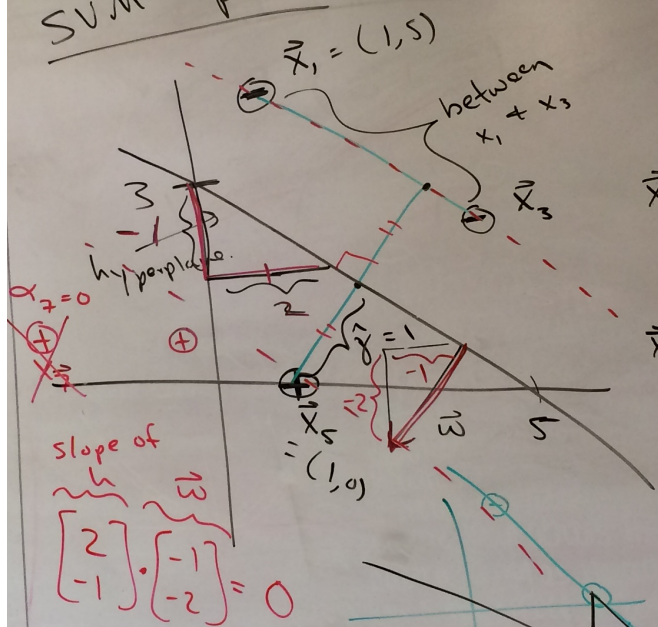 SVM
x⃗₁ = (1,5)
between
x₁ + x₃
x⃗₃
3
-1
hyperplane.
2
α₇=0
γ̂ = 1
-1
-2
w⃗
5
x⃗₅
= (1,0)
slope of
h w⃗
[2 -1] · [-1 -2] = 0